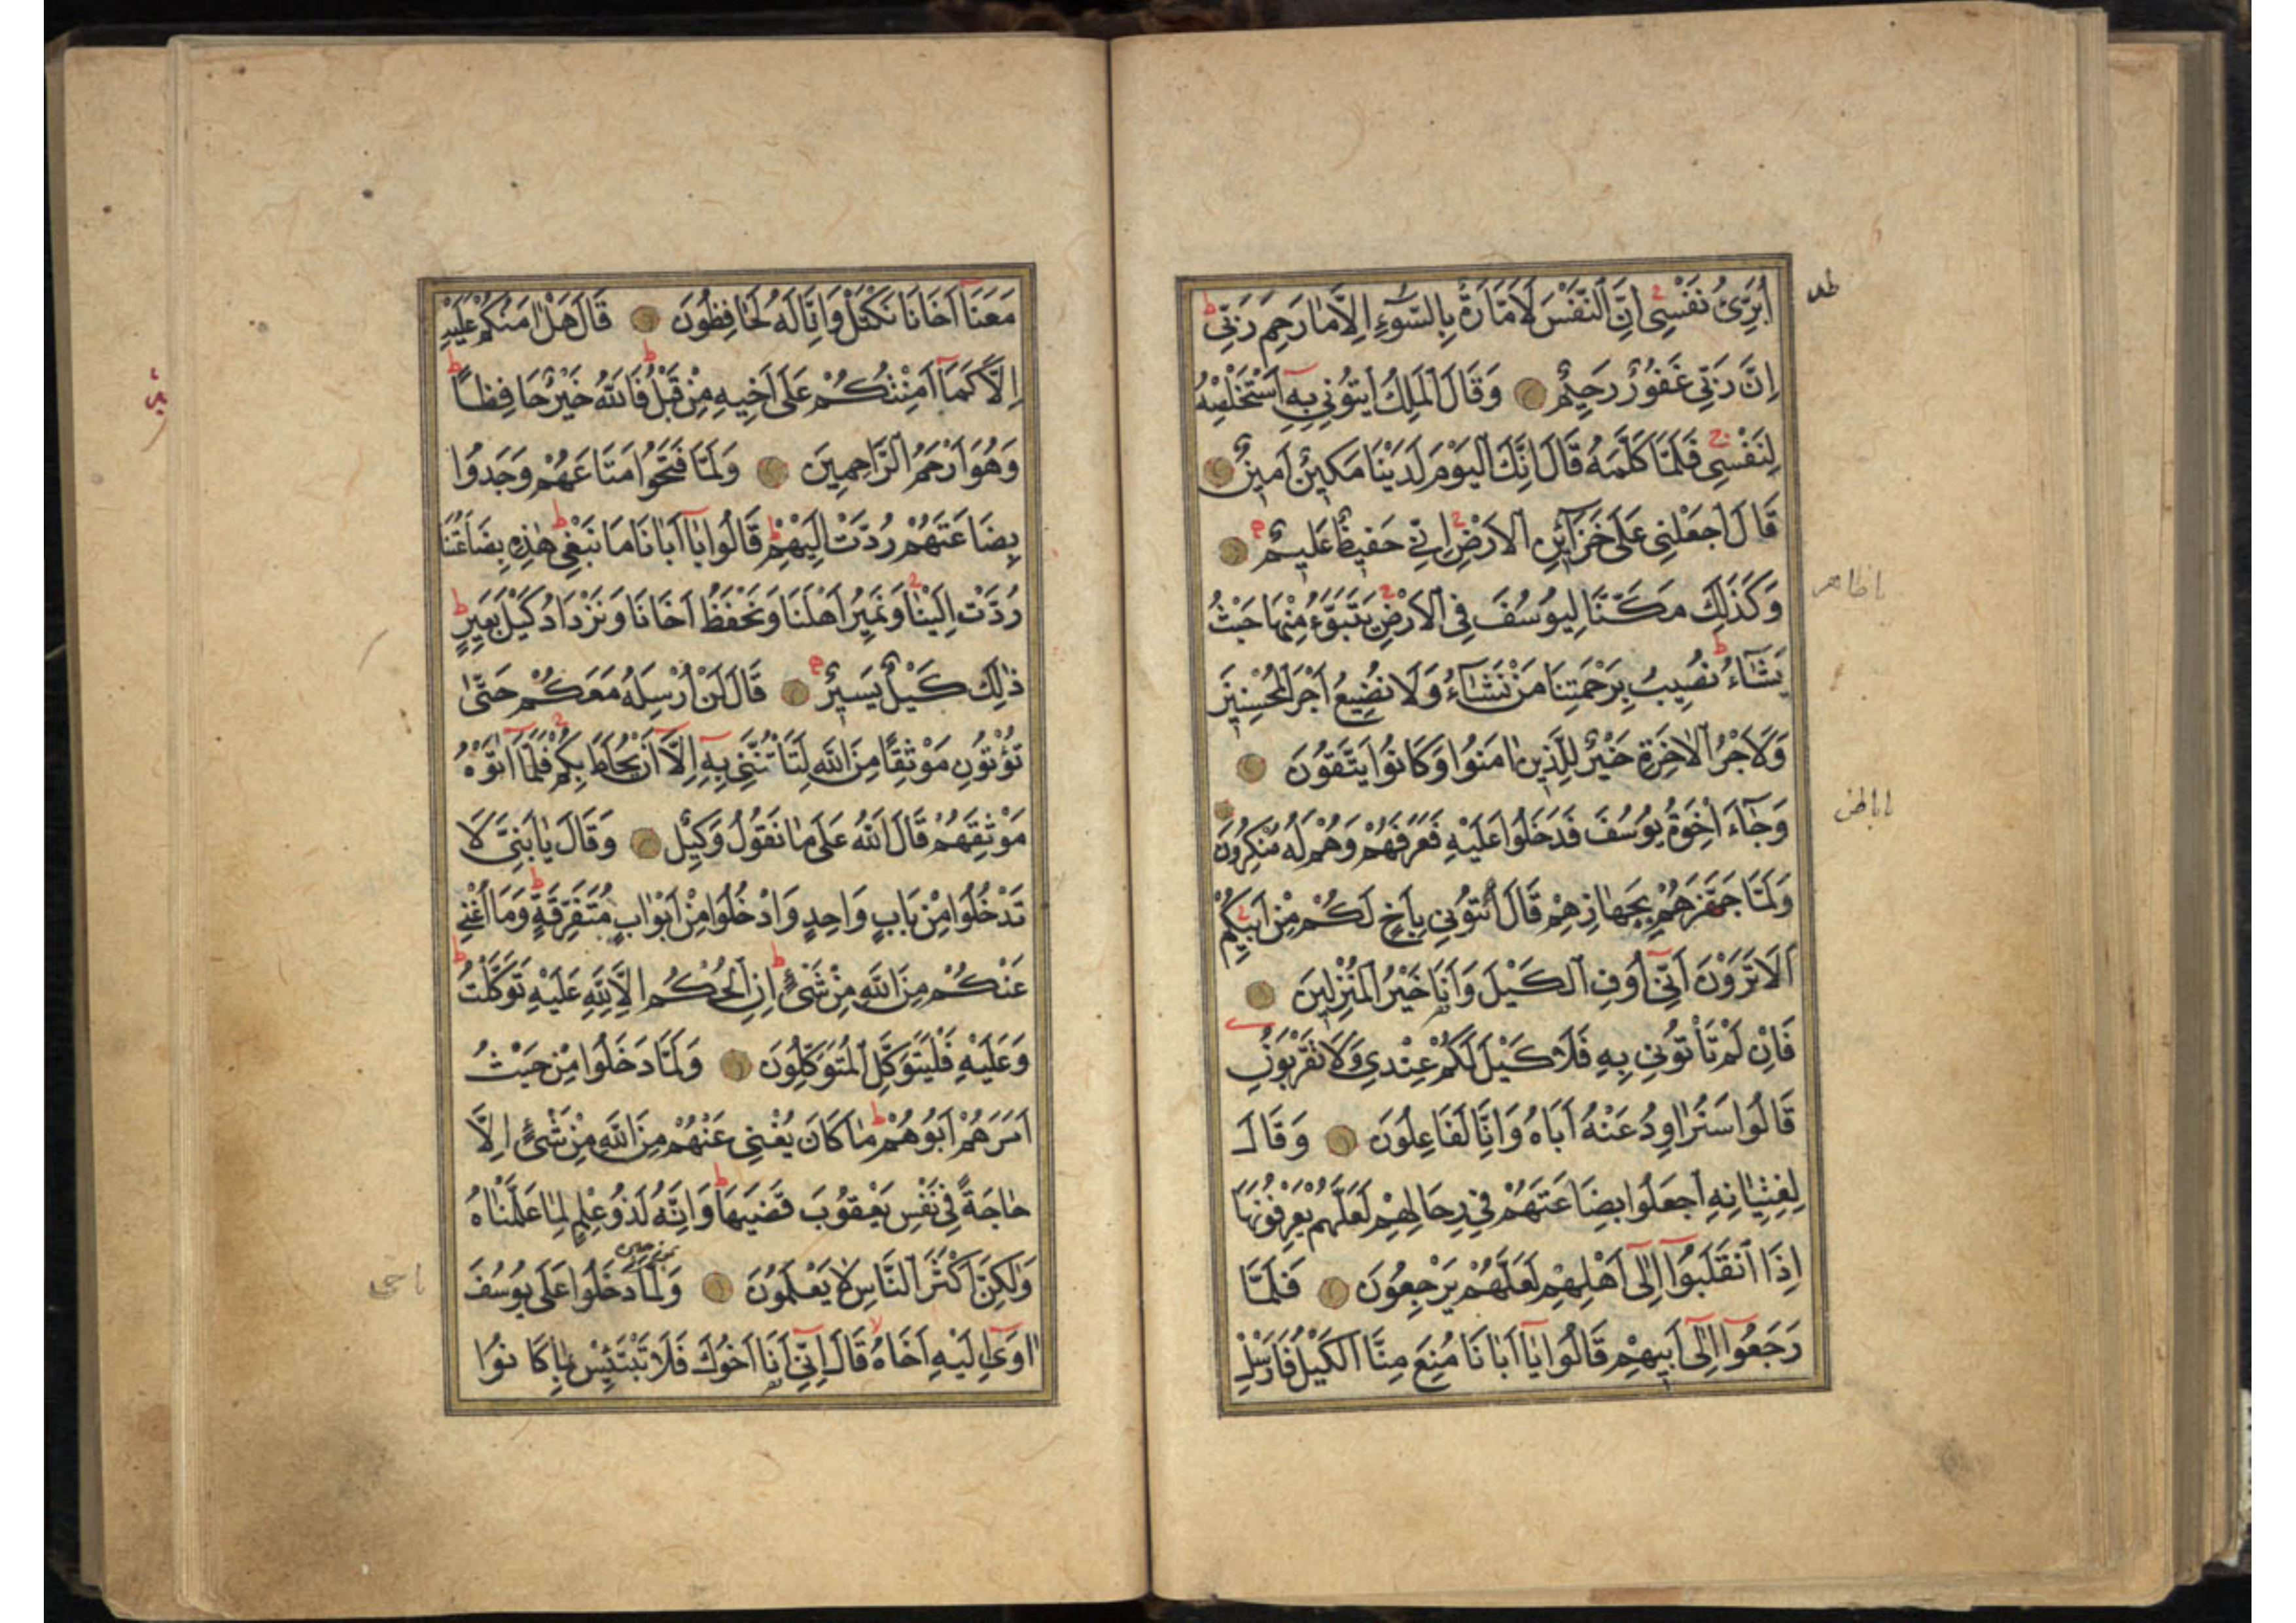 أُبَرِّئُ نَفْسِي اِنَّ النَّفْسَ لَاَمَّارَةٌ بِالسُّوٓءِ اِلَّا مَا رَحِمَ رَبِّي
اِنَّ رَبِّي غَفُورٌ رَحِيمٌ وَقَالَ الْمَلِكُ ايتُونِي بِهِ اَسْتَخْلِصْهُ
لِنَفْسِي فَلَمَّا كَلَّمَهُ قَالَ اِنَّكَ الْيَوْمَ لَدَيْنَا مَكِينٌ اَمِينٌ
قَالَ اجْعَلْنِي عَلَى خَزَآئِنِ الْاَرْضِ اِنِّي حَفِيظٌ عَلِيمٌ
وَكَذَلِكَ مَكَّنَّا لِيُوسُفَ فِي الْاَرْضِ يَتَبَوَّءُ مِنْهَا حَيْثُ
يَشَآءُ نُصِيبُ بِرَحْمَتِنَا مَنْ نَشَآءُ وَلَا نُضِيعُ اَجْرَ الْمُحْسِنِينَ
وَلَاَجْرُ الْاٰخِرَةِ خَيْرٌ لِلَّذِينَ اٰمَنُوا وَكَانُوا يَتَّقُونَ
وَجَآءَ اِخْوَةُ يُوسُفَ فَدَخَلُوا عَلَيْهِ فَعَرَفَهُمْ وَهُمْ لَهُ مُنْكِرُونَ
وَلَمَّا جَهَّزَهُمْ بِجَهَازِهِمْ قَالَ ائْتُونِي بِاَخٍ لَكُمْ مِنْ اَبِيكُمْ
اَلَا تَرَوْنَ اَنِّي اُوفِ الْكَيْلَ وَاَنَا خَيْرُ الْمُنْزِلِينَ
فَاِنْ لَمْ تَأْتُونِي بِهِ فَلَا كَيْلَ لَكُمْ عِنْدِي وَلَا تَقْرَبُونِ
قَالُوا سَنُرَاوِدُ عَنْهُ اَبَاهُ وَاِنَّا لَفَاعِلُونَ وَقَالَ
لِفِتْيَانِهِ اجْعَلُوا بِضَاعَتَهُمْ فِي رِحَالِهِمْ لَعَلَّهُمْ يَعْرِفُونَهَا
اِذَا انْقَلَبُوٓا اِلٰٓى اَهْلِهِمْ لَعَلَّهُمْ يَرْجِعُونَ فَلَمَّا
رَجَعُوٓا اِلٰٓى اَبِيهِمْ قَالُوا يَآ اَبَانَا مُنِعَ مِنَّا الْكَيْلُ فَاَرْسِلْ
مَعَنَآ اَخَانَا نَكْتَلْ وَاِنَّا لَهُ لَحَافِظُونَ قَالَ هَلْ اٰمَنُكُمْ عَلَيْهِ
اِلَّا كَمَآ اَمِنْتُكُمْ عَلَى اَخِيهِ مِنْ قَبْلُ فَاللّٰهُ خَيْرٌ حَافِظًا
وَهُوَ اَرْحَمُ الرَّاحِمِينَ وَلَمَّا فَتَحُوا مَتَاعَهُمْ وَجَدُوا
بِضَاعَتَهُمْ رُدَّتْ اِلَيْهِمْ قَالُوا يَآ اَبَانَا مَا نَبْغِي هٰذِهِ بِضَاعَتُنَا
رُدَّتْ اِلَيْنَا وَنَمِيرُ اَهْلَنَا وَنَحْفَظُ اَخَانَا وَنَزْدَادُ كَيْلَ بَعِيرٍ
ذٰلِكَ كَيْلٌ يَسِيرٌ قَالَ لَنْ اُرْسِلَهُ مَعَكُمْ حَتّٰى
تُؤْتُونِ مَوْثِقًا مِنَ اللّٰهِ لَتَأْتُنَّنِي بِهِ اِلَّآ اَنْ يُحَاطَ بِكُمْ فَلَمَّآ اٰتَوْهُ
مَوْثِقَهُمْ قَالَ اللّٰهُ عَلَى مَا نَقُولُ وَكِيلٌ وَقَالَ يَا بَنِيَّ لَا
تَدْخُلُوا مِنْ بَابٍ وَاحِدٍ وَادْخُلُوا مِنْ اَبْوَابٍ مُتَفَرِّقَةٍ وَمَآ اُغْنِي
عَنْكُمْ مِنَ اللّٰهِ مِنْ شَيْءٍ اِنِ الْحُكْمُ اِلَّا لِلّٰهِ عَلَيْهِ تَوَكَّلْتُ
وَعَلَيْهِ فَلْيَتَوَكَّلِ الْمُتَوَكِّلُونَ وَلَمَّا دَخَلُوا مِنْ حَيْثُ
اَمَرَهُمْ اَبُوهُمْ مَا كَانَ يُغْنِي عَنْهُمْ مِنَ اللّٰهِ مِنْ شَيْءٍ اِلَّا
حَاجَةً فِي نَفْسِ يَعْقُوبَ قَضٰيهَا وَاِنَّهُ لَذُو عِلْمٍ لِمَا عَلَّمْنَاهُ
وَلٰكِنَّ اَكْثَرَ النَّاسِ لَا يَعْلَمُونَ وَلَمَّا دَخَلُوا عَلَى يُوسُفَ
اٰوٰٓى اِلَيْهِ اَخَاهُ قَالَ اِنِّي اَنَا اَخُوكَ فَلَا تَبْتَئِسْ بِمَا كَانُوا